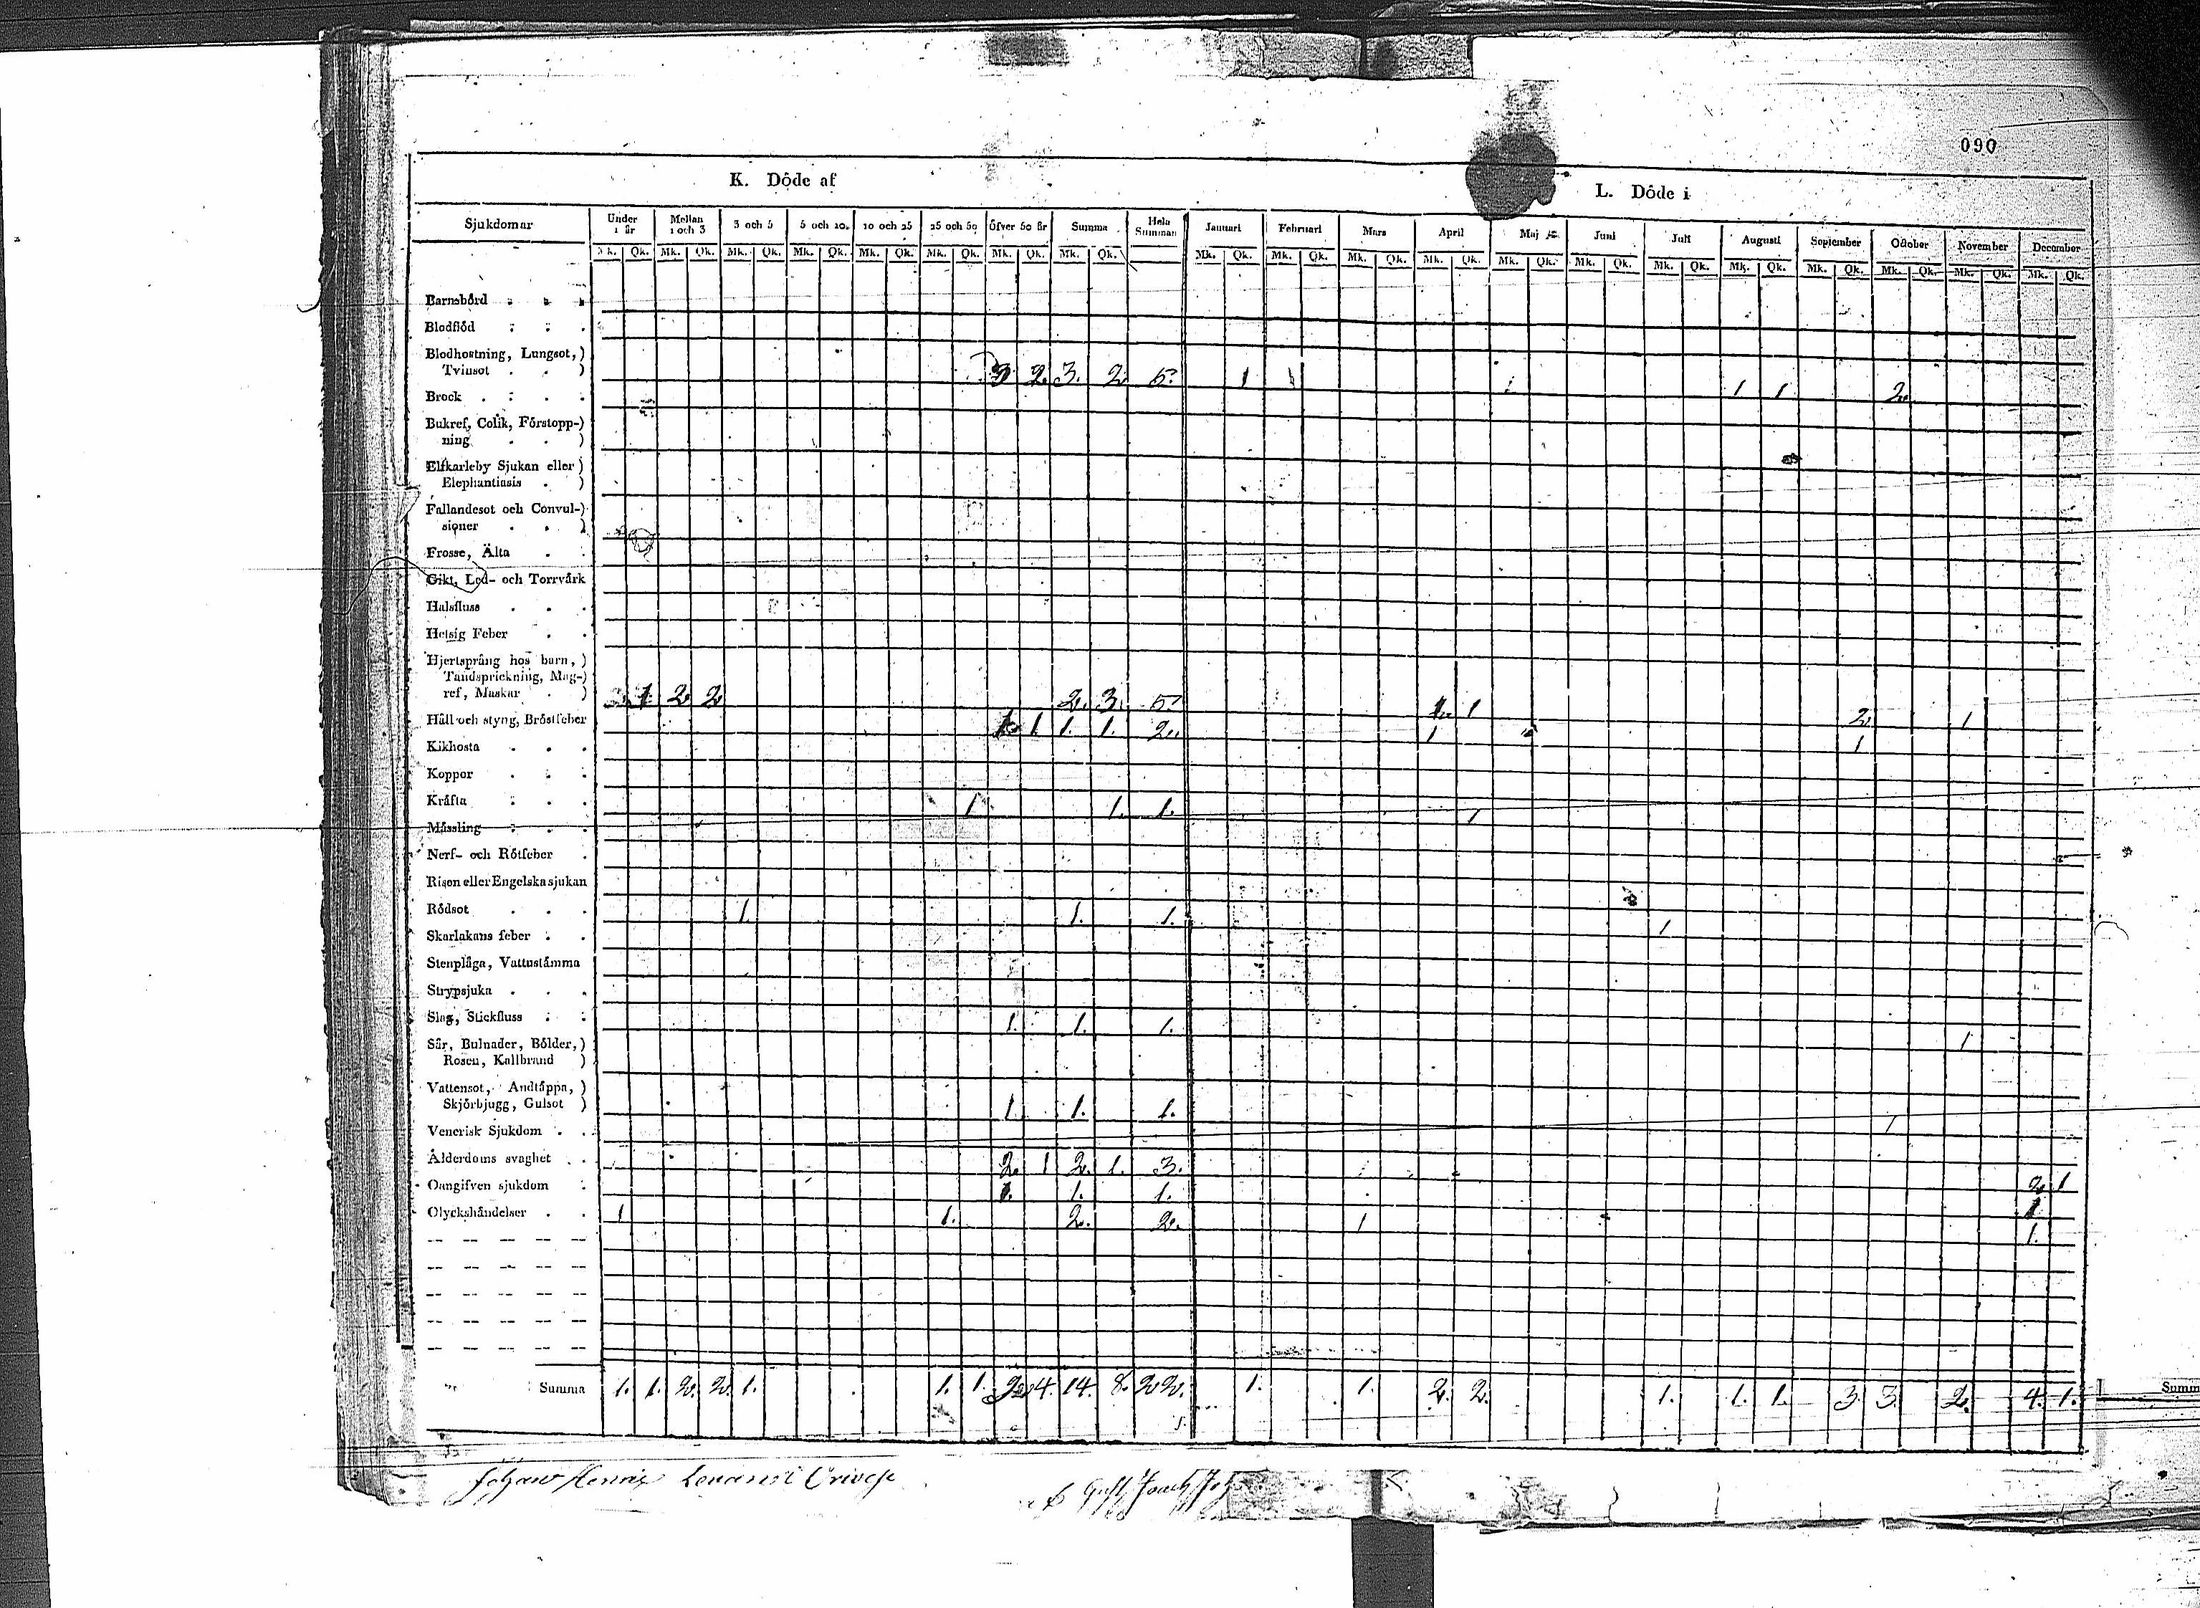 090
K. Döde af
L. Döde i
Sjukdomar Under 1 år Mellan 1 och 3 3 och 5 5 och 10. 10 och 25 25 och 50 Öfver 50 år Summa Hela Summan Januari Februari Mars April Maj Juni Juli Augusti September October November December
Mk. Qk. Mk. Qk. Mk. Qk. Mk. Qk. Mk. Qk. Mk. Qk. Mk. Qk. Mk. Qk. Mk. Qk. Mk. Qk. Mk. Qk. Mk. Qk. Mk. Qk. Mk. Qk. Mk. Qk. Mk. Qk. Mk. Qk. Mk. Qk. Mk. Qk. Mk. Qk.
Barnsbörd
Blodflöd
Blodhostning, Lungsot,)
Tvinsot . . ) 3 2. 3. 2 5. 1 1 1 2.
Brock
Bukref, Colik, Förstopp-)
ning . . )
Elfkarleby Sjukan eller)
Elephantiasis . )
Fallandesot och Convul-)
sioner . . )
Frosse, Älta
Gikt, Led- och Torrvärk
Halsfluss
Hetsig Feber
Hjertsprång hos barn, )
Tandsprickning, Mag-)
ref, Maskar . ) 1 2 2 2. 3. 5. 1 1 2 1
Håll och styng, Bröstfeber 1 1. 1. 1. 2. 1 1
Kikhosta
Koppor
Kräfta 1 1. 1. 1
Mässling
Nerf- och Rötfeber
Risen eller Engelska sjukan
Rödsot 1. 1. 1. 1
Skarlakans feber
Stenplåga, Vattustämma
Strypsjuka
Slag, Stickfluss 1. 1. 1. 1
Sår, Bulnader, Bölder,)
Rosen, Kallbrand )
Vattensot, Andtäppa, )
Skjörbjugg, Gulsot ) 1. 1. 1. 1
Venerisk Sjukdom
Ålderdoms svaghet 2. 1 2. 1. 3. 2 1
Oangifven sjukdom 1. 1. 1. 1
Olyckshändelser 1 1. 2. 2. 1 1.
Summa 1. 1. 2. 2. 1. 1. 1. 4. 14. 8. 22. 1. 1. 2. 2. 1. 1. 1. 3. 3. 2. 4. 1.
Summ
Johan